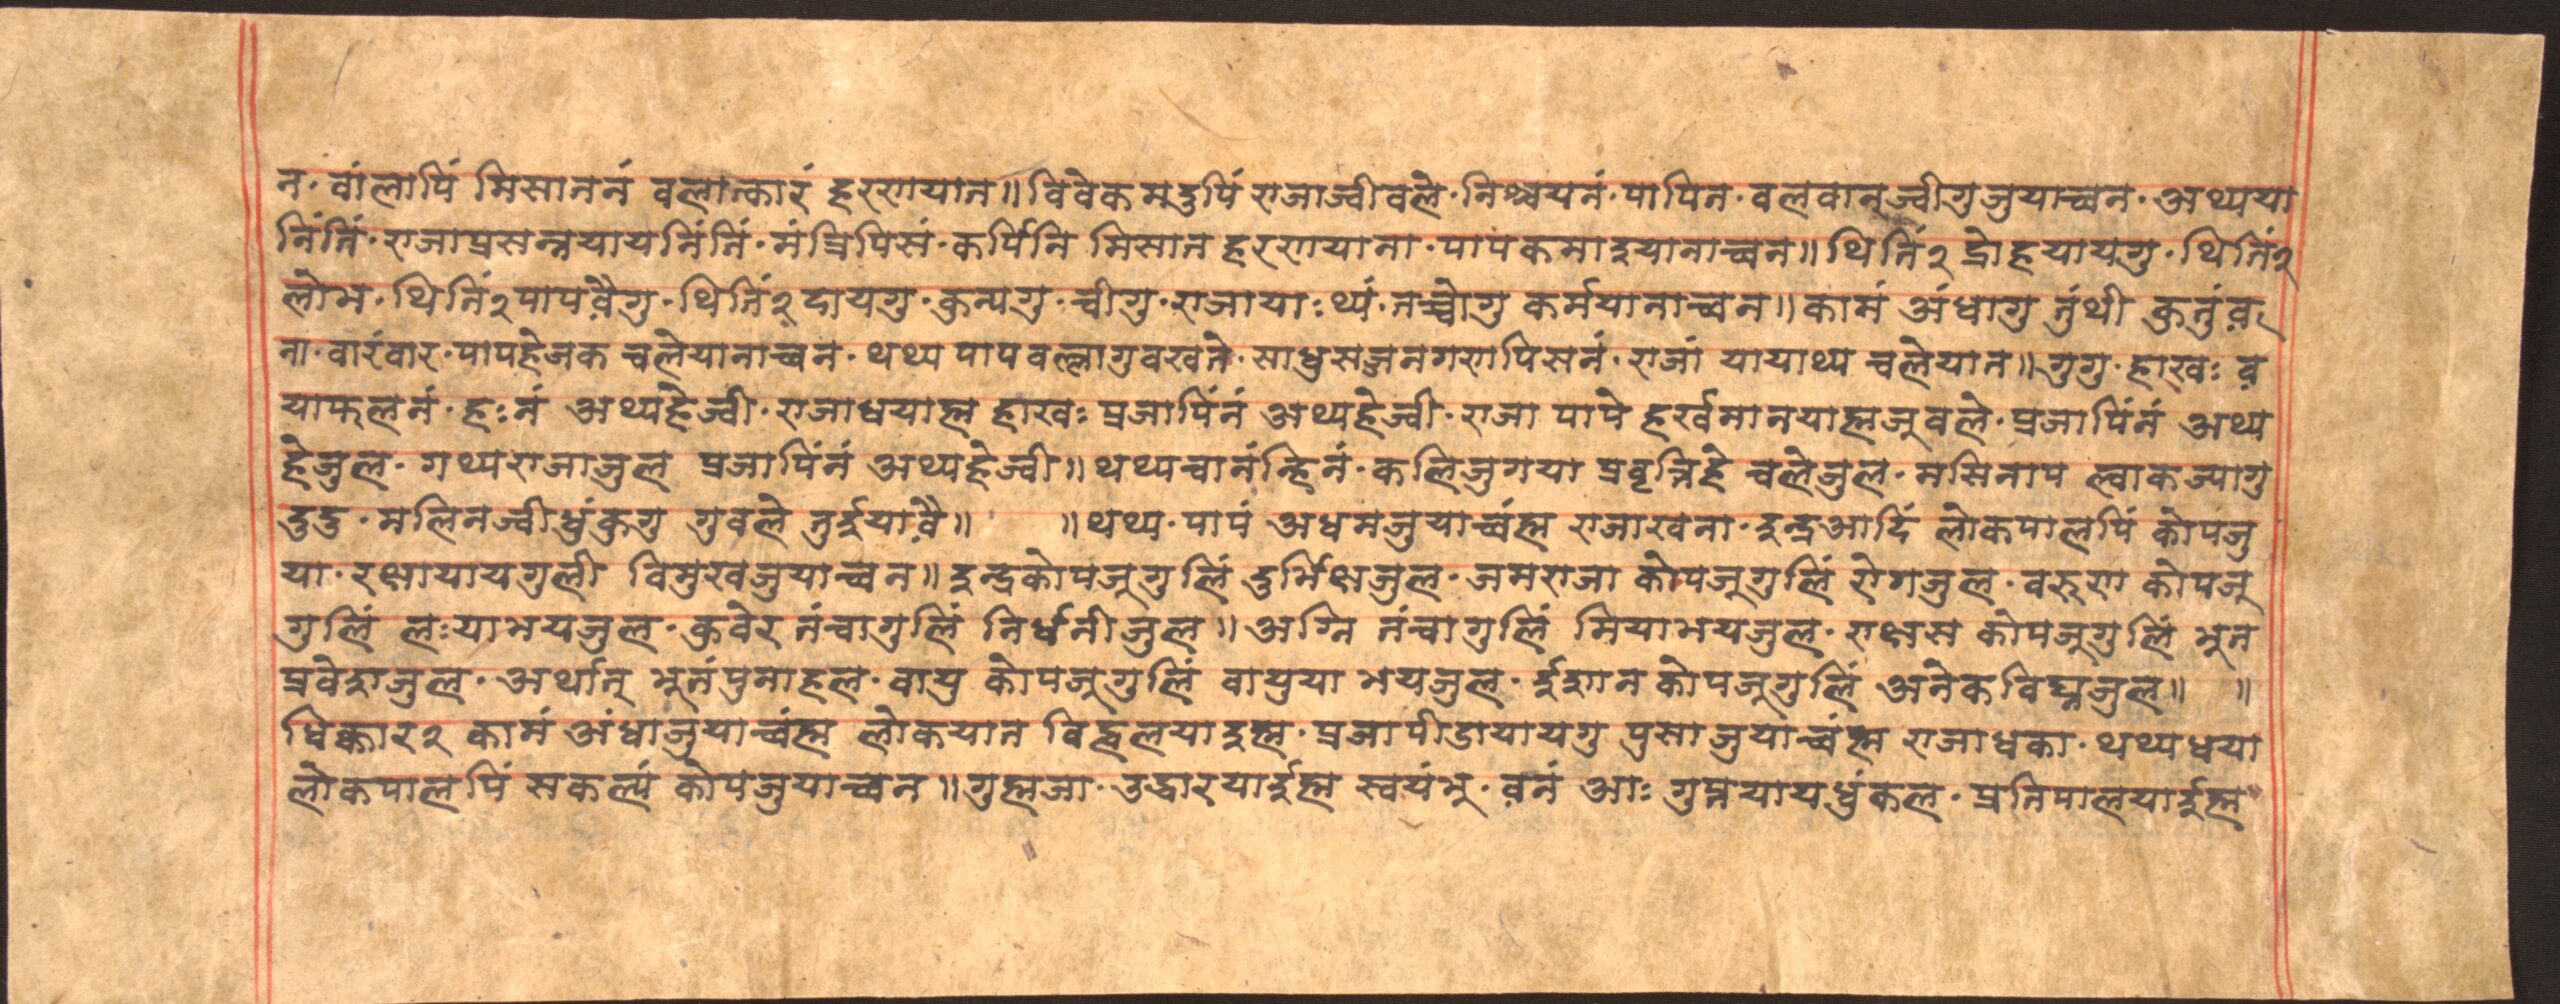 न· वांलापिं मिसाननं वलात्कारं हरणयात॥ विवेक मदुपिं राजाज्वीवले· निश्चयनं· पापित· वलवानज्वीगुजुयाच्वन· अथ्यया
निंतिं· राजाप्रसन्नयायनिंतिं· मंत्रिपिसं· कपिंनि मिसात हरणयाना· पापकमाइयानाच्वन॥ थितिं२ द्रोहयायगु· थितिं२
लोभ· थितिं२ पापव़ैगु· थितिं२ दायगु· कुत्यगु· च्वीगु· राजायाः थ्यं· तच्वोगु कर्मयानाच्वन॥ कामं अंधागु तुंथी कुतुंव़
ना· वारंवार· पापहेजक चलेयानाच्वन· थथ्य पापवल्लागुवखते· साधुसज्जनगणपिसनं· राजां यायाथ्य चलेयात॥ गुगु· हाखः व़
याफलनं· हःनं अथ्यहेज्वी· राजाधयाह्म हाखः प्रजापिंनं अथ्यहेज्वी· राजा पापे हर्खमानयाह्मजुवले· प्रजापिंनं अथ्य
हेजुल· गथ्यराजाजुल प्रजापिंनं अथ्यहेज्वी॥ थथ्यच्वानंन्हिनं· कलिजुगया प्रवृत्तिहे चलेजुल· मसिनाप ल्वाकज्यागु
दुदु· मलिनज्वीधुंकुगु गुवले तुर्इयाव़ै॥ ॥ थथ्य· पापं अधमजुयाच्वंह्म राजाखना· इन्द्रआदिं लोकपालपिं कोपजु
या· रक्षायायगुली विमुखजुयाच्वन॥ इन्द्रकोपजूगुलिं दुर्भिक्षजुल· जमराजा कोपजूगुलिं रोगजुल· वरुण कोपजू
गुलिं लःयाभयजुल· कुवेर तंच्वागुलिं निर्धनीजुल॥ अग्नि तंच्वागुलिं मियाभयजुल· राक्षस कोपजूगुलिं भूत
प्रवेशजुल· अर्थात् भूतंपुनाहल· वायु कोपजूगुलिं वायुया भयजुल· ईशान कोपजूगुलिं अनेकविघ्नजुल॥ ॥
धिक्कार२ कामं अंधाजुयाच्वंह्म लोकयात विह्वलयाइह्म· प्रजापीडायायगु पुसाजुयाच्वंह्म राजाधका· थथ्यधया
लोकपालपिं सकल्यं कोपजुयाच्वन॥ गुह्मजा· उद्धारयाईह्म स्वयंभू· व़नं आः गुप्तयायधुंकल· प्रतिपालयाईह्म